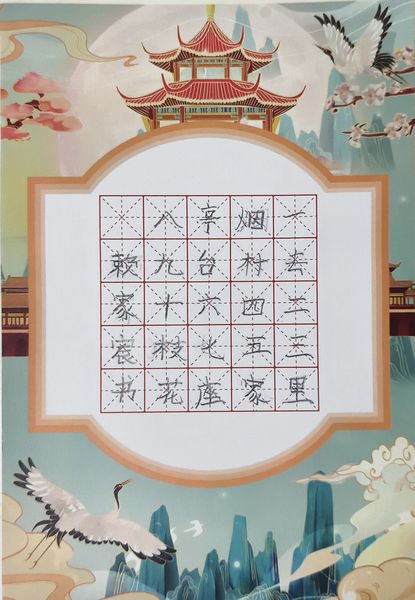 一去二三里
烟村四五家
亭台六七座
八九十枝花
赖家宸书